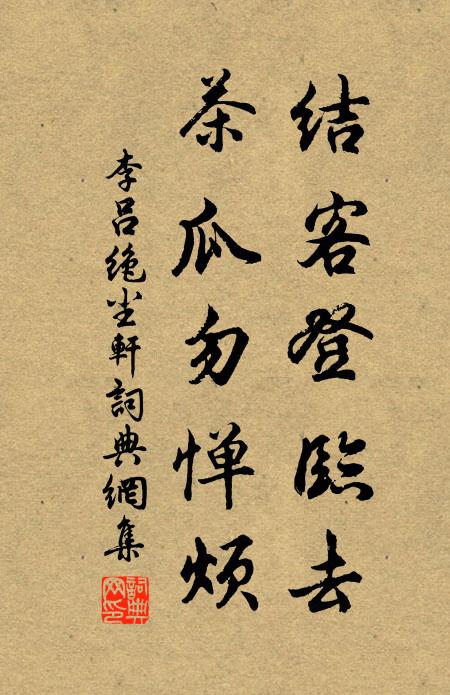 结客登臨去
茶瓜勿惮烦
李吕绝尘軒詞典網集
詞典网印